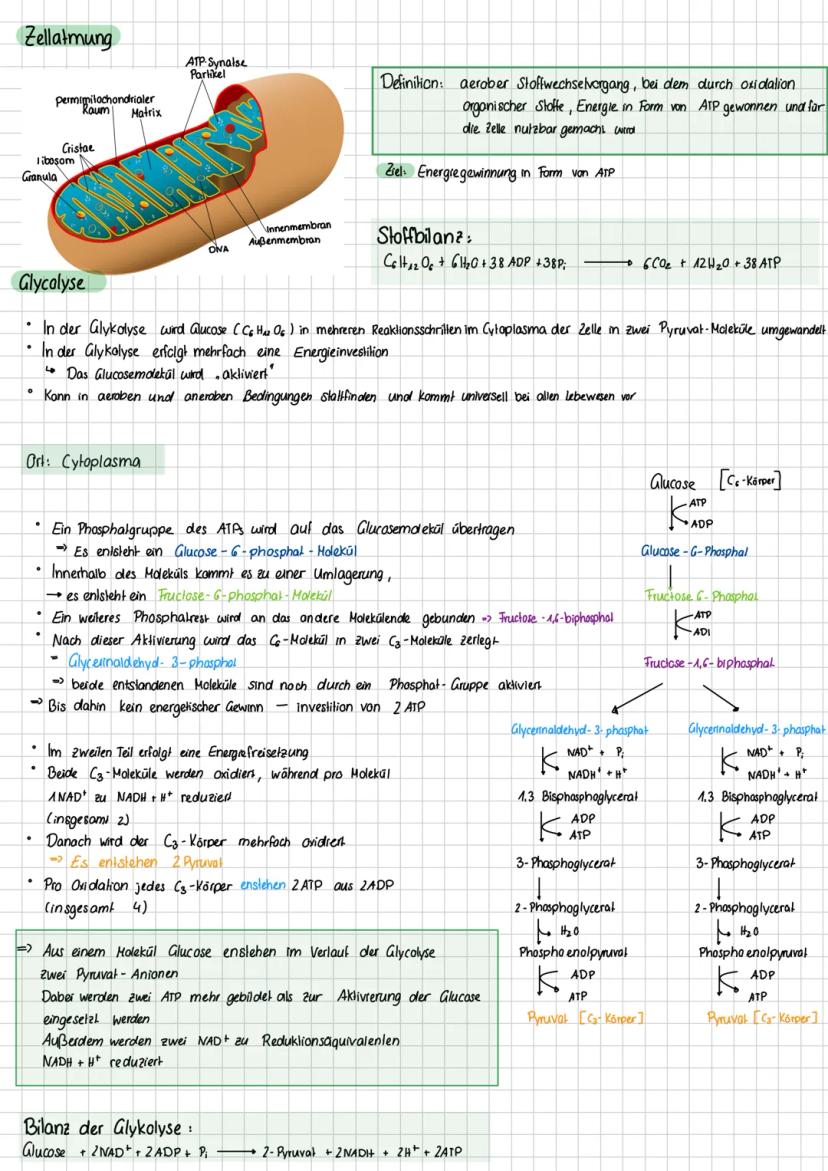 Zellatmung
ATP-Synatse
Partikel
permimitochondrialer
Raum
Matrix
Cristae
libosom
Granula
Innenmembran
Außenmembran
DNA
Definition: aerober Stoffwechselvorgang, bei dem durch oxidation
organischer Stoffe, Energie in Form von ATP gewonnen und für
die Zelle nutzbar gemacht wird
Ziel: Energiegewinnung in Form von ATP
Stoffbilanz:
C₆H₁₂O₆ + 6H₂O + 38 ADP + 38Pᵢ ⟶ 6CO₂ + 12H₂O + 38 ATP
Glycolyse
• In der Glykolyse wird Glucose (C₆H₁₂O₆) in mehreren Reaktionsschritten im Cytoplasma der Zelle in zwei Pyruvat-Moleküle umgewandelt
• In der Glykolyse erfolgt mehrfach eine Energieinvestition
↳ Das Glucosemolekül wird „aktiviert"
• Kann in aeroben und aneroben Bedingungen stattfinden und kommt universell bei allen Lebewesen vor
Ort: Cytoplasma
• Ein Phosphatgruppe des ATPs wird auf das Glucosemolekül übertragen
⇒ Es entsteht ein Glucose-6-phosphat-Molekül
• Innerhalb des Moleküls kommt es zu einer Umlagerung,
→ es entsteht ein Fructose-6-phosphat-Molekül
• Ein weiteres Phosphatrest wird an das andere Molekülende gebunden ⇒ Fructose-1,6-biphosphat
• Nach dieser Aktivierung wird das C₆-Molekül in zwei C₃-Moleküle zerlegt
- Glycerinaldehyd-3-phosphat
⇒ beide entstandenen Moleküle sind noch durch ein Phosphat-Gruppe aktiviert
⇒ Bis dahin kein energetischer Gewinn – investition von 2 ATP
• Im zweiten Teil erfolgt eine Energiefreisetzung
• Beide C₃-Moleküle werden oxidiert, während pro Molekül
1NAD⁺ zu NADH + H⁺ reduziert
(insgesamt 2)
• Danach wird der C₃-Körper mehrfach oxidiert
⇒ Es entstehen 2 Pyruvat
• Pro Oxidation jedes C₃-Körper enstehen 2 ATP aus 2ADP
(insgesamt 4)
⇒ Aus einem Molekül Glucose enstehen im Verlauf der Glycolyse
zwei Pyruvat-Anionen
Dabei werden zwei ATP mehr gebildet als zur Aktivierung der Glucose
eingesetzt werden
Außerdem werden zwei NAD⁺ zu Reduktionsäquivalenten
NADH + H⁺ reduziert
Glucose [C₆-Körper]
ATP
ADP
Glucose-6-Phosphat
Fructose 6-Phosphat
ATP
ADP
Fructose-1,6-biphosphat
Glycerinaldehyd-3-phosphat Glycerinaldehyd-3-phosphat
NAD⁺ + Pᵢ NAD⁺ + Pᵢ
NADH⁺ + H⁺ NADH⁺ + H⁺
1,3 Bisphosphoglycerat 1,3 Bisphosphoglycerat
ADP ADP
ATP ATP
3-Phosphoglycerat 3-Phosphoglycerat
2-Phosphoglycerat 2-Phosphoglycerat
H₂O H₂O
Phosphoenolpyruvat Phosphoenolpyruvat
ADP ADP
ATP ATP
Pyruvat [C₃-Körper] Pyruvat [C₃-Körper]
Bilanz der Glykolyse:
Glucose + 2NAD⁺ + 2 ADP + Pᵢ ⟶ 2-Pyruvat + 2NADH + 2H⁺ + 2ATP